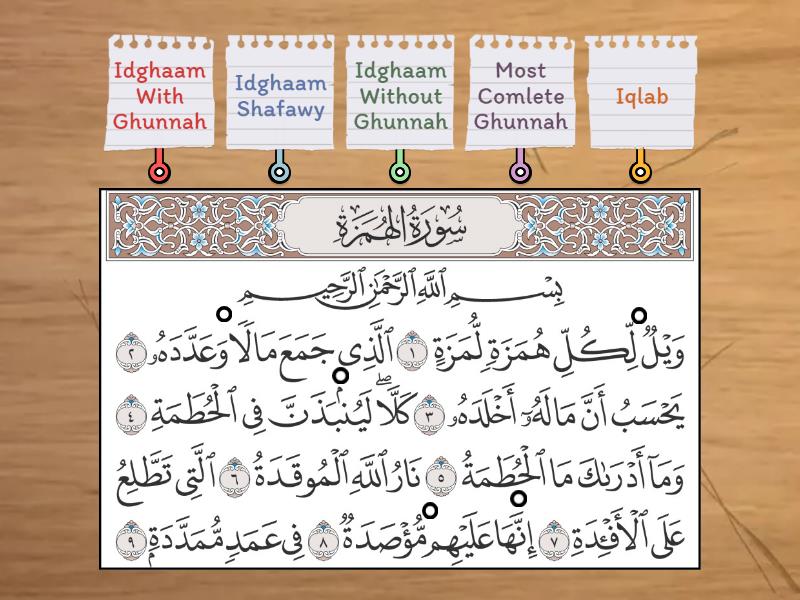 Idghaam With Ghunnah
Idghaam Shafawy
Idghaam Without Ghunnah
Most Comlete Ghunnah
Iqlab
سُورَةُ الهُمَزَةِ
بِسْمِ ٱللَّهِ ٱلرَّحْمَٰنِ ٱلرَّحِيمِ
وَيْلٌ لِّكُلِّ هُمَزَةٍ لُّمَزَةٍ ١ ٱلَّذِى جَمَعَ مَالًا وَعَدَّدَهُۥ ٢
يَحْسَبُ أَنَّ مَالَهُۥٓ أَخْلَدَهُۥ ٣ كَلَّا ۖ لَيُنۢبَذَنَّ فِى ٱلْحُطَمَةِ ٤
وَمَآ أَدْرَىٰكَ مَا ٱلْحُطَمَةُ ٥ نَارُ ٱللَّهِ ٱلْمُوقَدَةُ ٦ ٱلَّتِى تَطَّلِعُ
عَلَى ٱلْأَفْـِٔدَةِ ٧ إِنَّهَا عَلَيْهِم مُّؤْصَدَةٌ ٨ فِى عَمَدٍ مُّمَدَّدَةٍۭ ٩